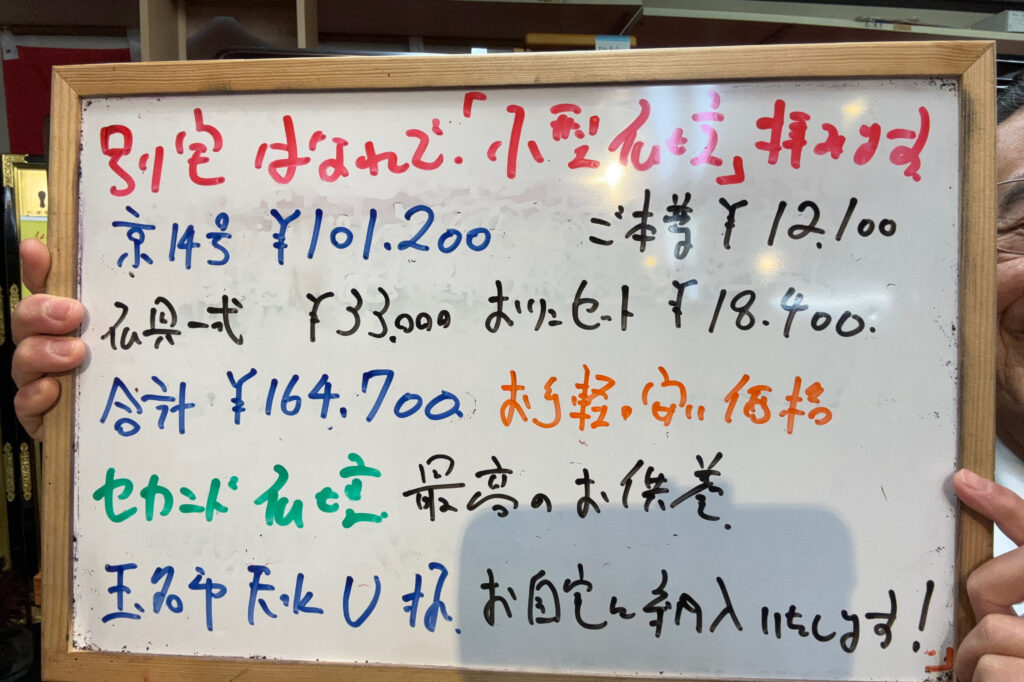 別宅 はなれで.「小型仏壇」拝みます
京14号 ¥101.200 ご本尊 ¥12.100
仏具一式 ¥33.000 おりんセット ¥18.400.
合計 ¥164.700 お手軽.安い価格
セカンド仏壇 最高のお供養.
玉名市天水U様. お自宅に納入いたします!